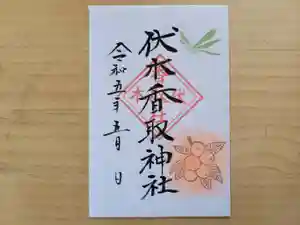 伏木香取神社
令和五年五月 日